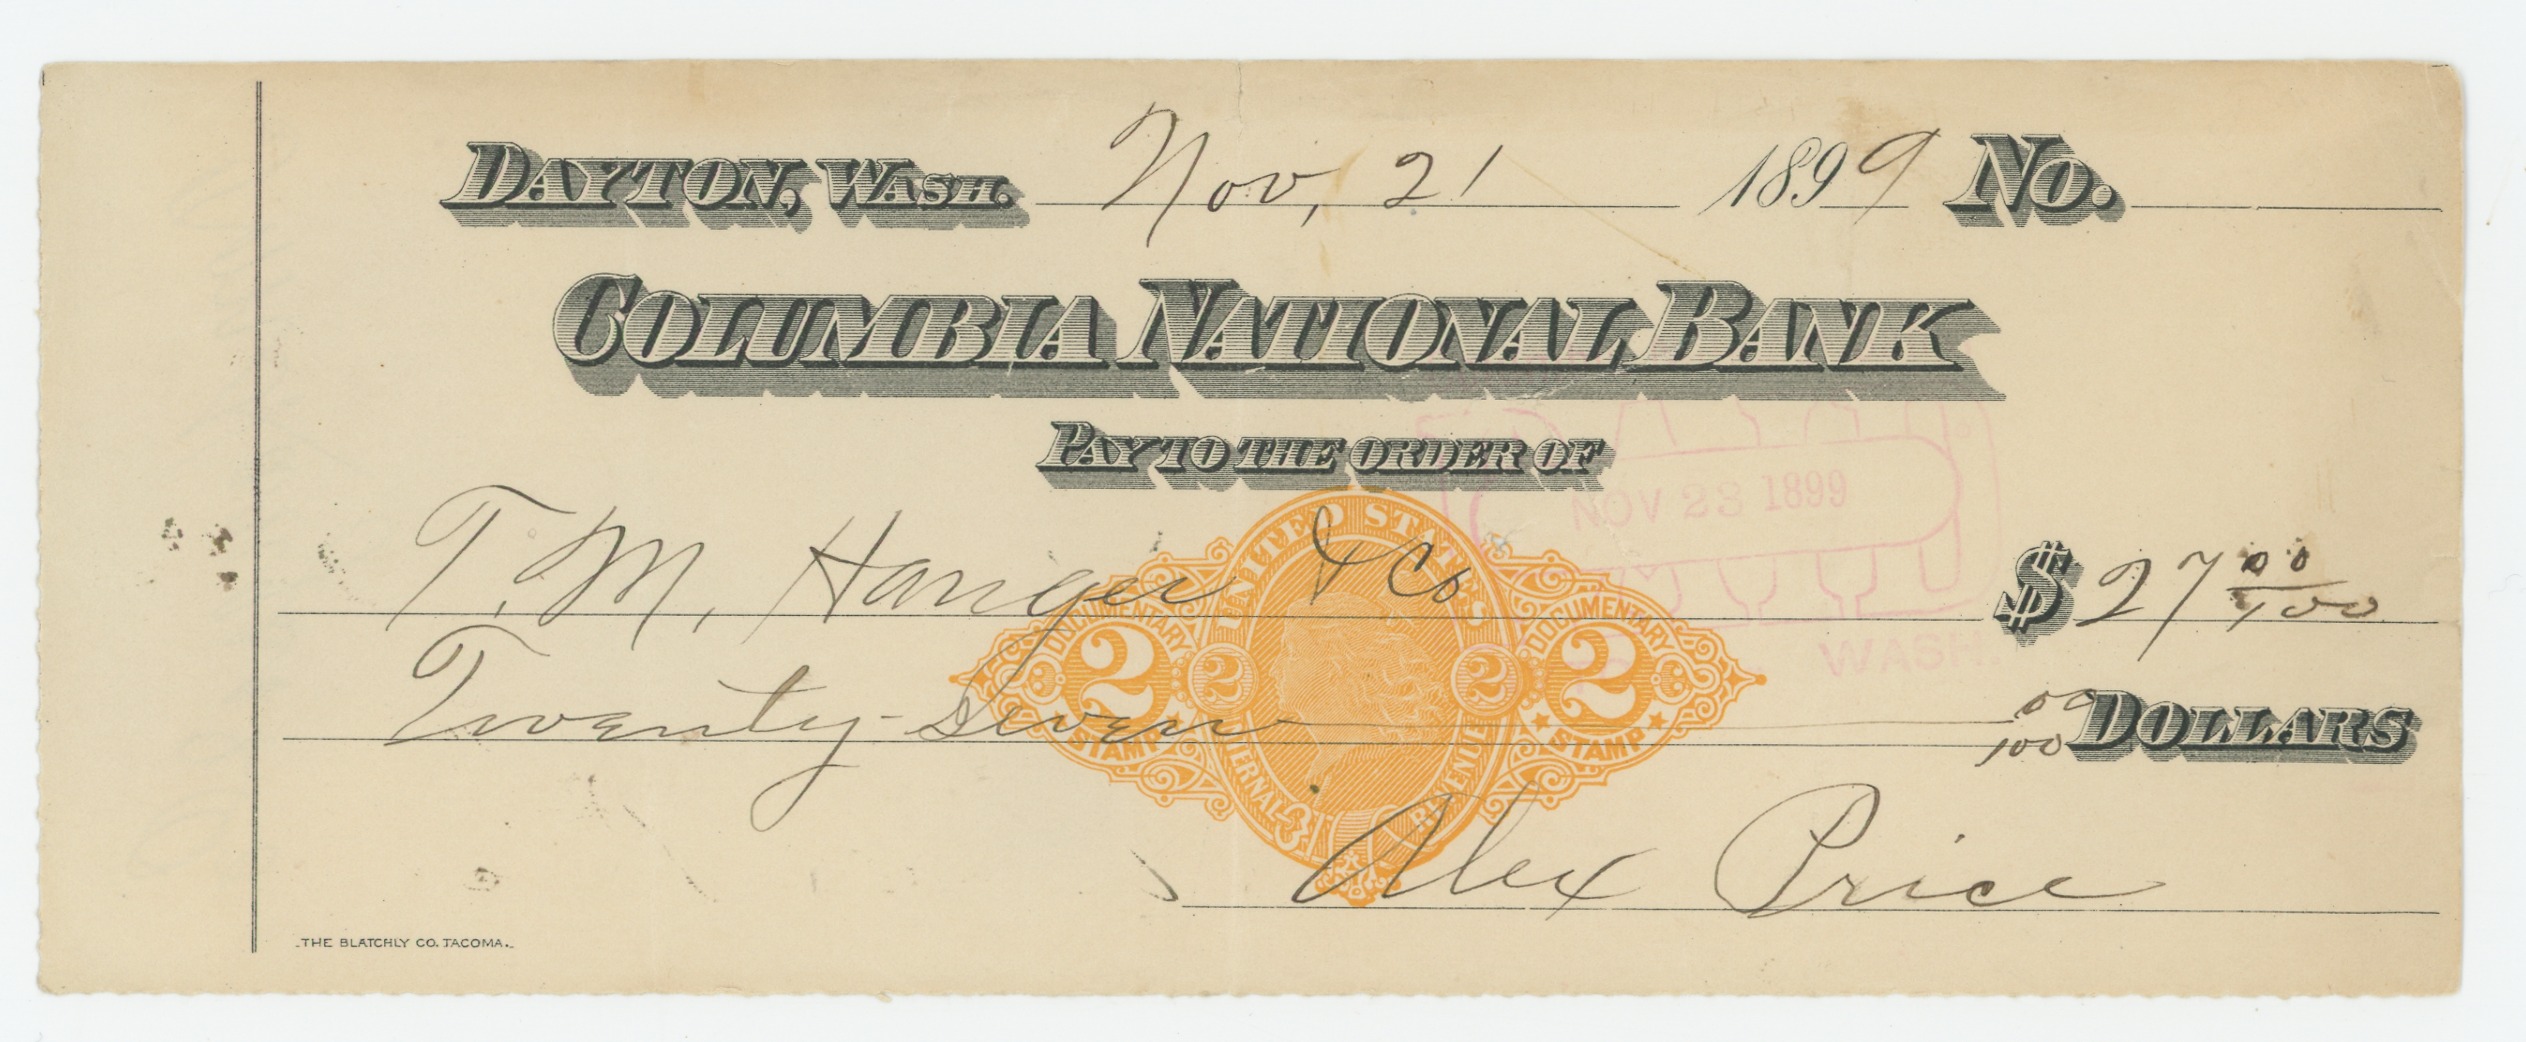 DAYTON, WASH. Nov, 21 1899 No.
COLUMBIA NATIONAL BANK
PAY TO THE ORDER OF
NOV 23 1899
T. M. Hanger & Co $ 27 00/100
UNITED STATES INTERNAL REVENUE
DOCUMENTARY 2 STAMP 2 2 DOCUMENTARY 2 STAMP
WASH.
Twenty-Seven 00/100 DOLLARS
Alex Price
THE BLATCHLY CO. TACOMA.